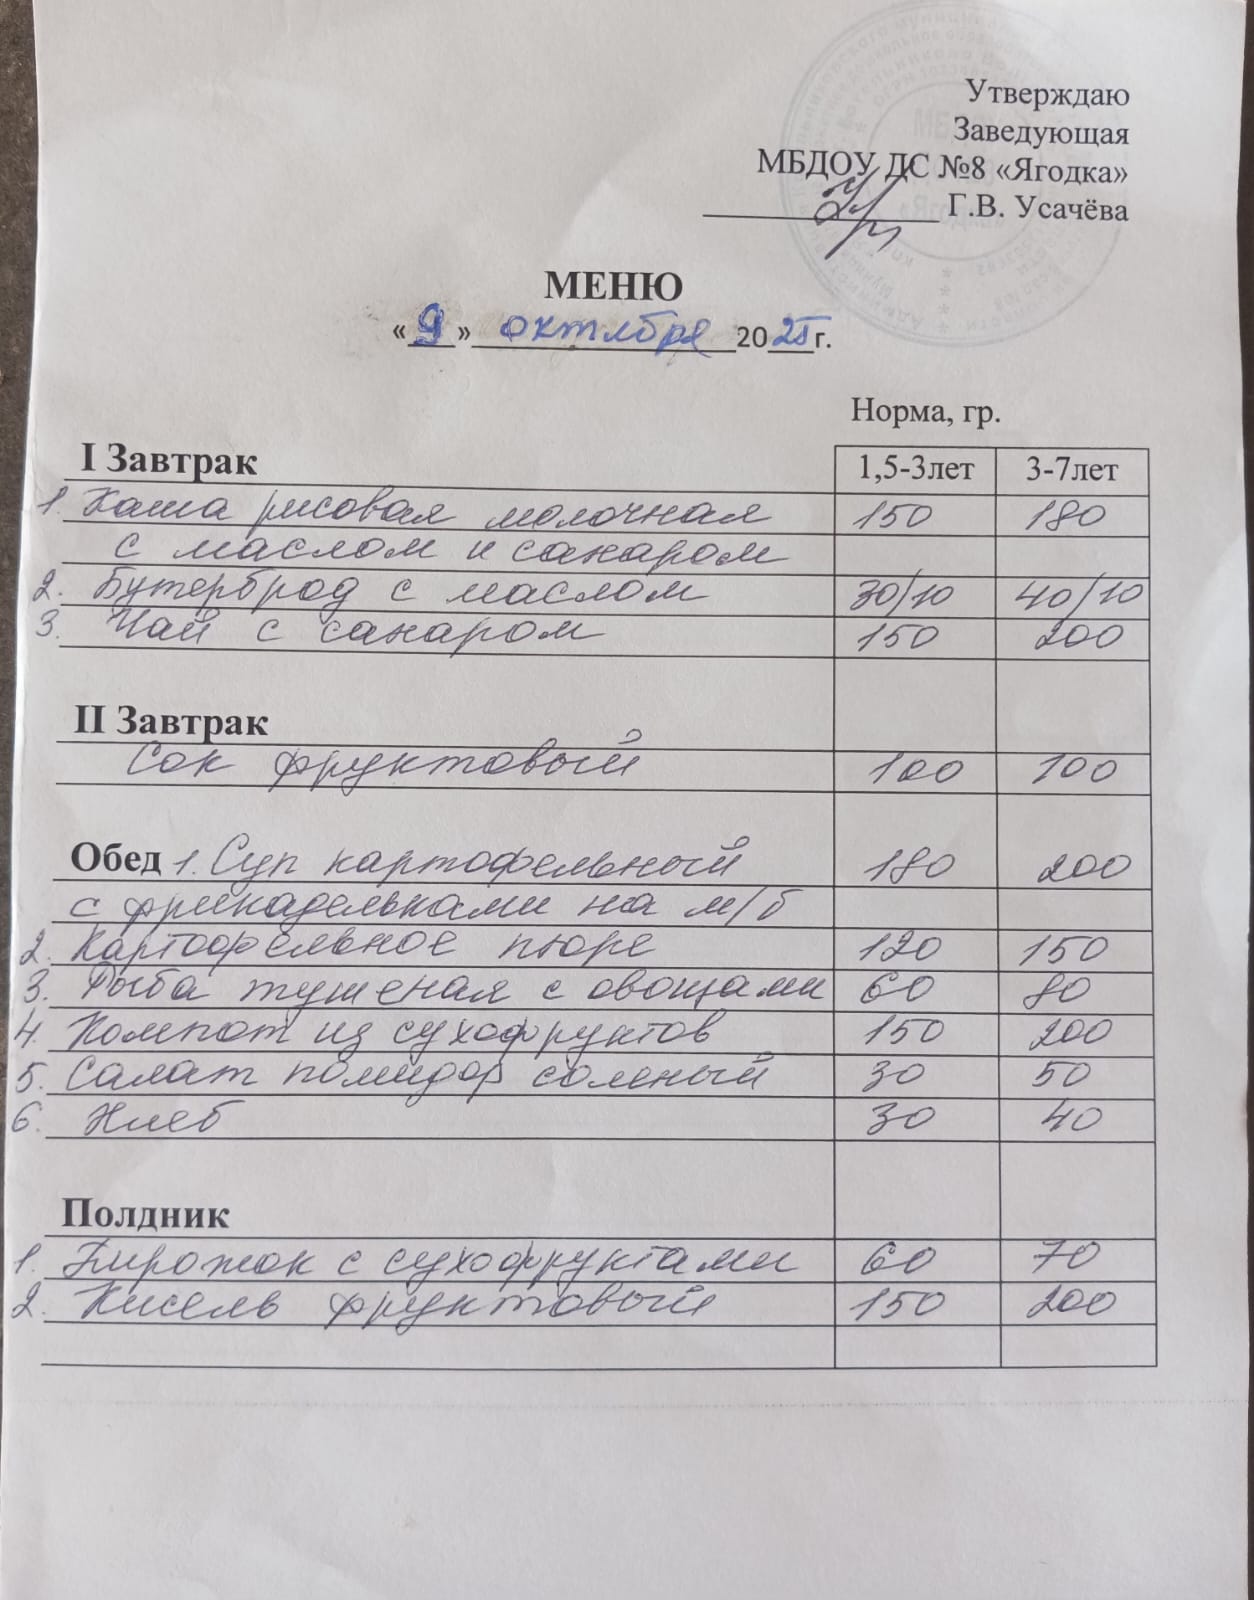 Утверждаю
Заведующая
МБДОУ ДС №8 «Ягодка»
Г.В. Усачёва
МЕНЮ
«9» октября 2025 г.
Норма, гр.
I Завтрак 1,5-3лет 3-7лет
1. Каша рисовая молочная 150 180
с маслом и сахаром
2. Бутерброд с маслом 30/10 40/10
3. Чай с сахаром 150 200
II Завтрак
Сок фруктовый 100 100
Обед 1. Суп картофельный 180 200
с фрикадельками на м/б
2. Картофельное пюре 120 150
3. Рыба тушеная с овощами 60 80
4. Компот из сухофруктов 150 200
5. Салат помидор соленый 30 50
6. Хлеб 30 40
Полдник
1. Пирожок с сухофруктами 60 70
2. Кисель фруктовый 150 200